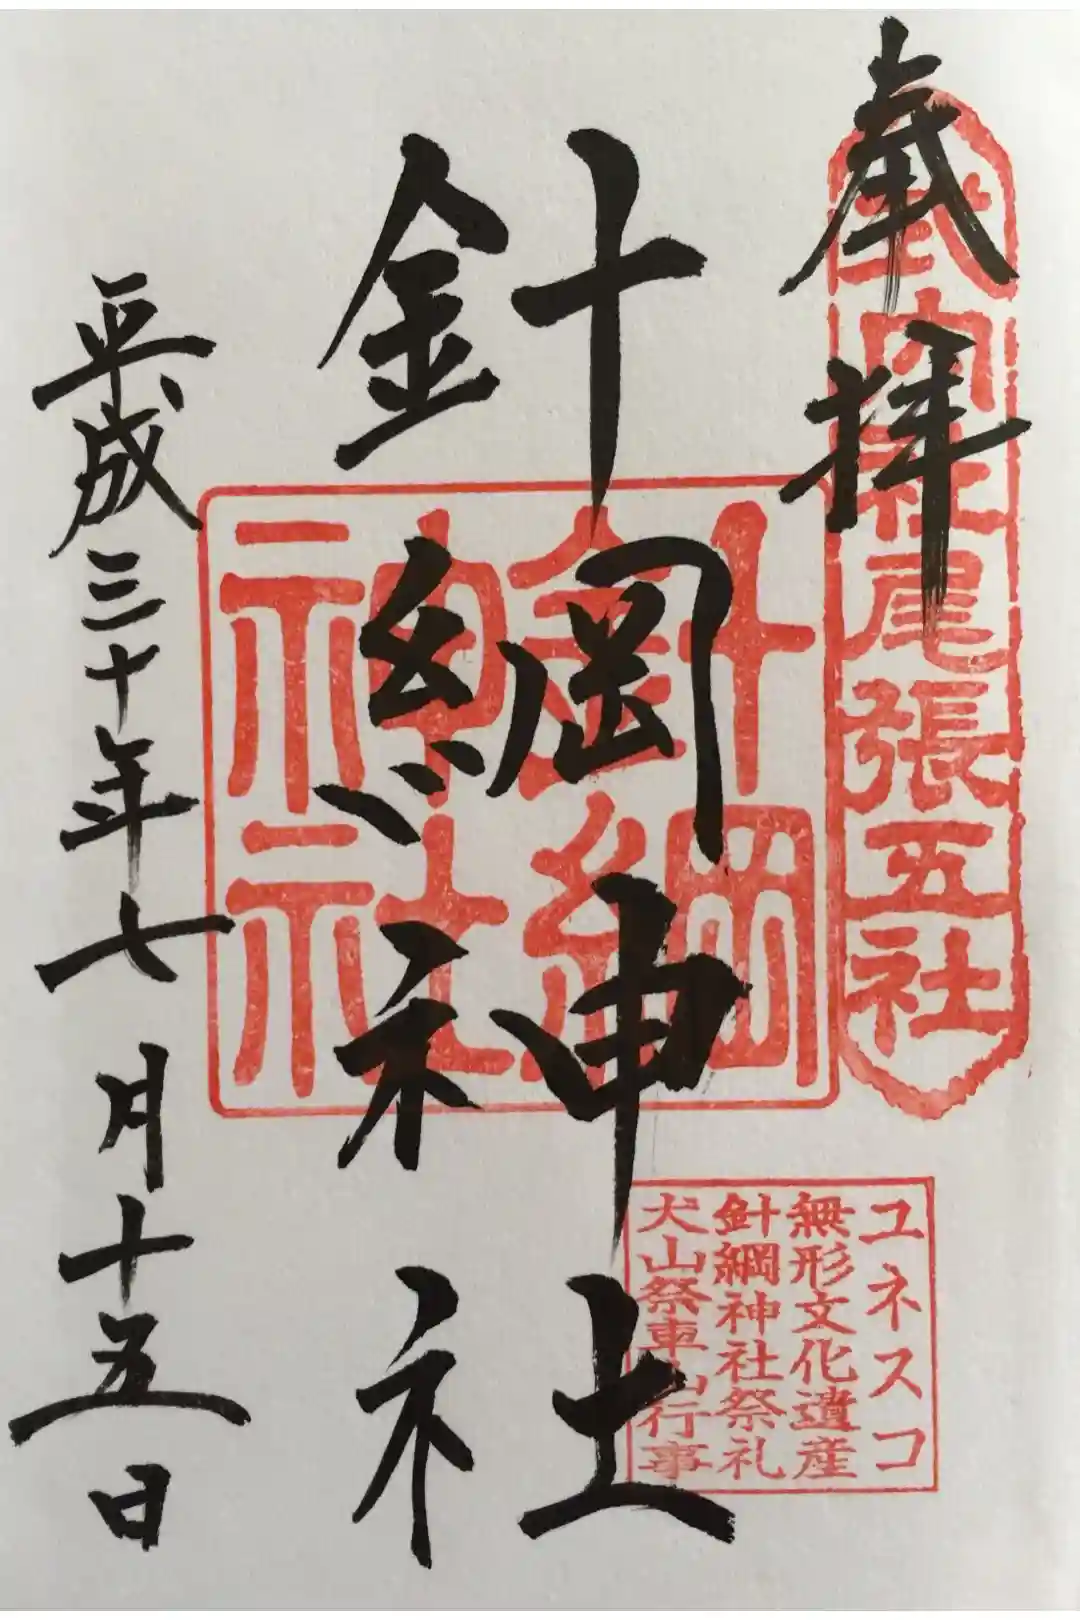 奉拝
式内社尾張五社
針綱神社
針綱
神社
ユネスコ
無形文化遺産
針綱神社祭礼
犬山祭車山行事
平成三十年七月十五日